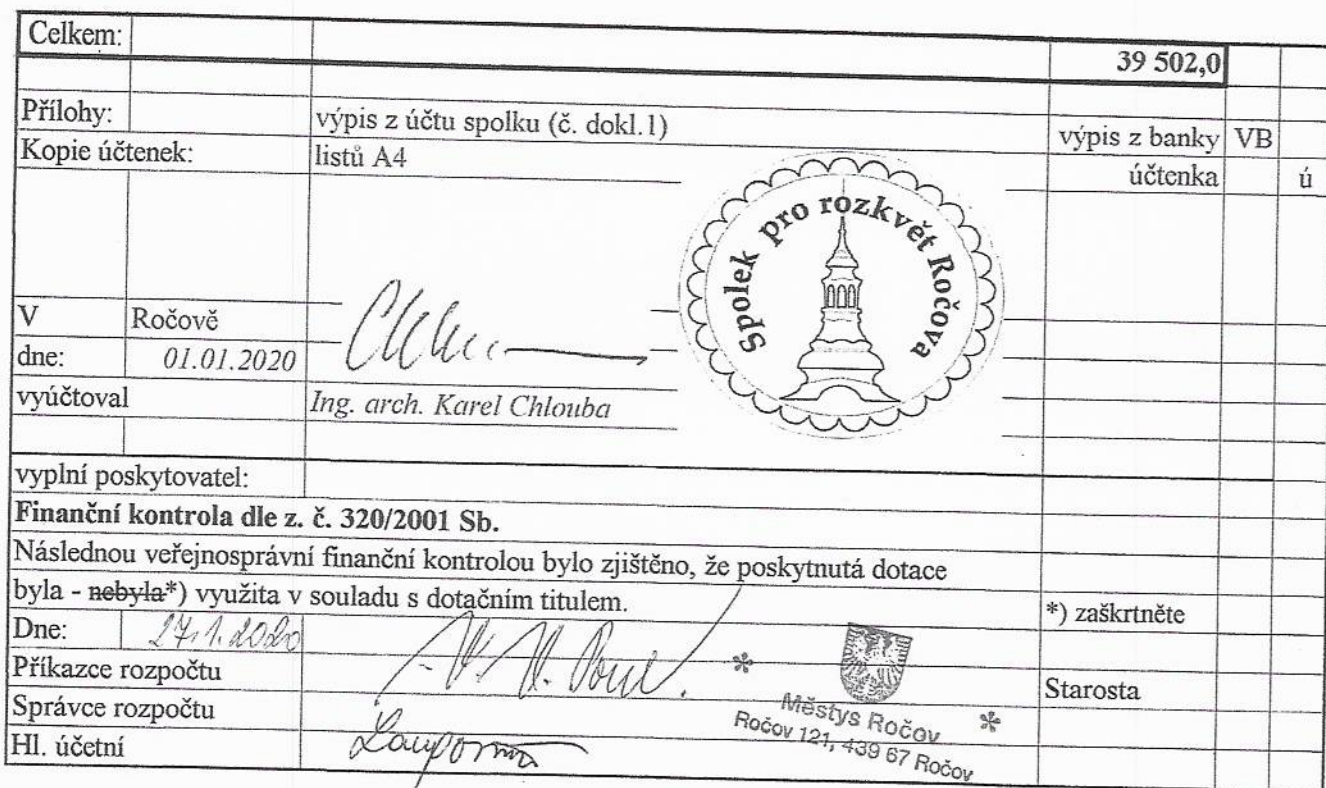 Celkem: 39 502,0
Přílohy: výpis z účtu spolku (č. dokl.1) výpis z banky VB
Kopie účtenek: listů A4 účtenka ú
Spolek pro rozkvět Ročova
V Ročově
dne: 01.01.2020
vyúčtoval Ing. arch. Karel Chlouba
vyplní poskytovatel:
Finanční kontrola dle z. č. 320/2001 Sb.
Následnou veřejnosprávní finanční kontrolou bylo zjištěno, že poskytnutá dotace
byla - nebyla*) využita v souladu s dotačním titulem. *) zaškrtněte
Dne: 27.1.2020
Příkazce rozpočtu Starosta
Správce rozpočtu
Hl. účetní
* Městys Ročov *
Ročov 121, 439 67 Ročov